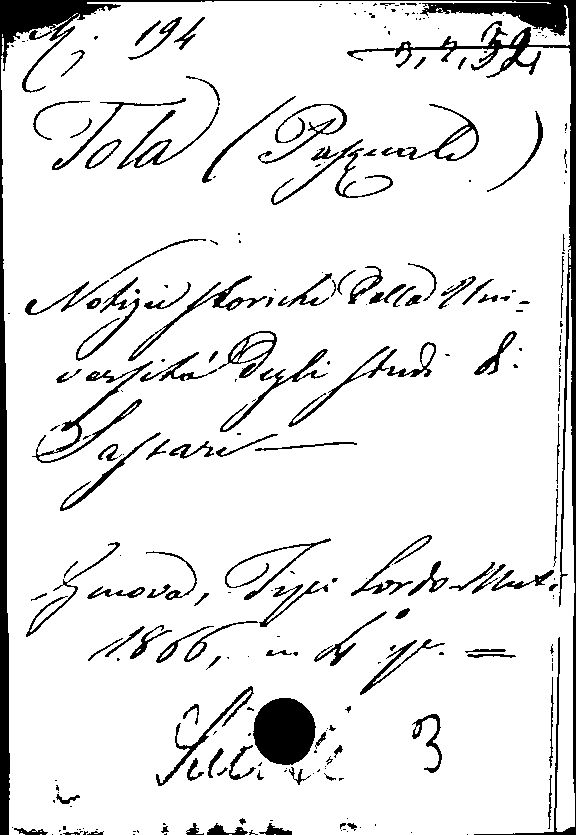 194
3,2,32,
Tola (Pasquale)
Notizie storiche della Uni-
versità degli studi di
Sassari
Genova, Tipi Sordo-Muti
1866, in 4° gr. =
3